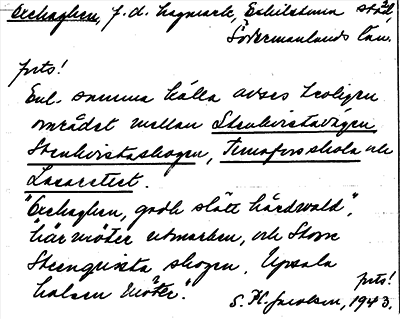 Ekehagen, f.d. hagmark, Eskilstuna stad,
Södermanlands län.
forts!
Enl. samma källa avses troligen
området mellan Stenkvistavägen,
Stenkvistaskogen, Tunaforsskola och
Lasarettet.
"Ekehagen, godh slätt hårdwald",
"här möter utmarken, och Store
Steenquista skogen, Upsala
halsen möter".
forts!
S. H. Jacobson, 1943.